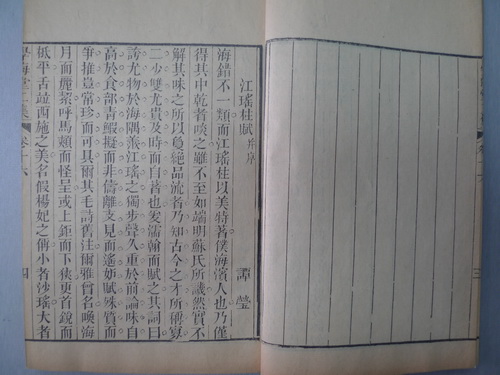 江瑤柱賦 并序
譚瑩
海錯不一類而江瑤柱以美特著僕海濱人也乃僅
得其中乾者啖之雖不至如端明蘇氏所譏然實不
解其味之所以爲絕品流者乃知古今之才所稱寡
二少雙尤貴及時而自著也爰濡翰而賦之其詞曰
誇尤物於海隅羨江瑤之獨步聲久重於前論味自
高於食部青鰕擬而非儔離支見而遙妒賦殊質而
爭推豈常珍而可具爾其毛詩舊注爾雅曾名喚海
月而麗絜呼馬頰而怪呈或上鉅而下狹更首銳而
柢平舌竝西施之美名假楊妃之倩小者沙瑤大者
海堂 集 卷十六 四